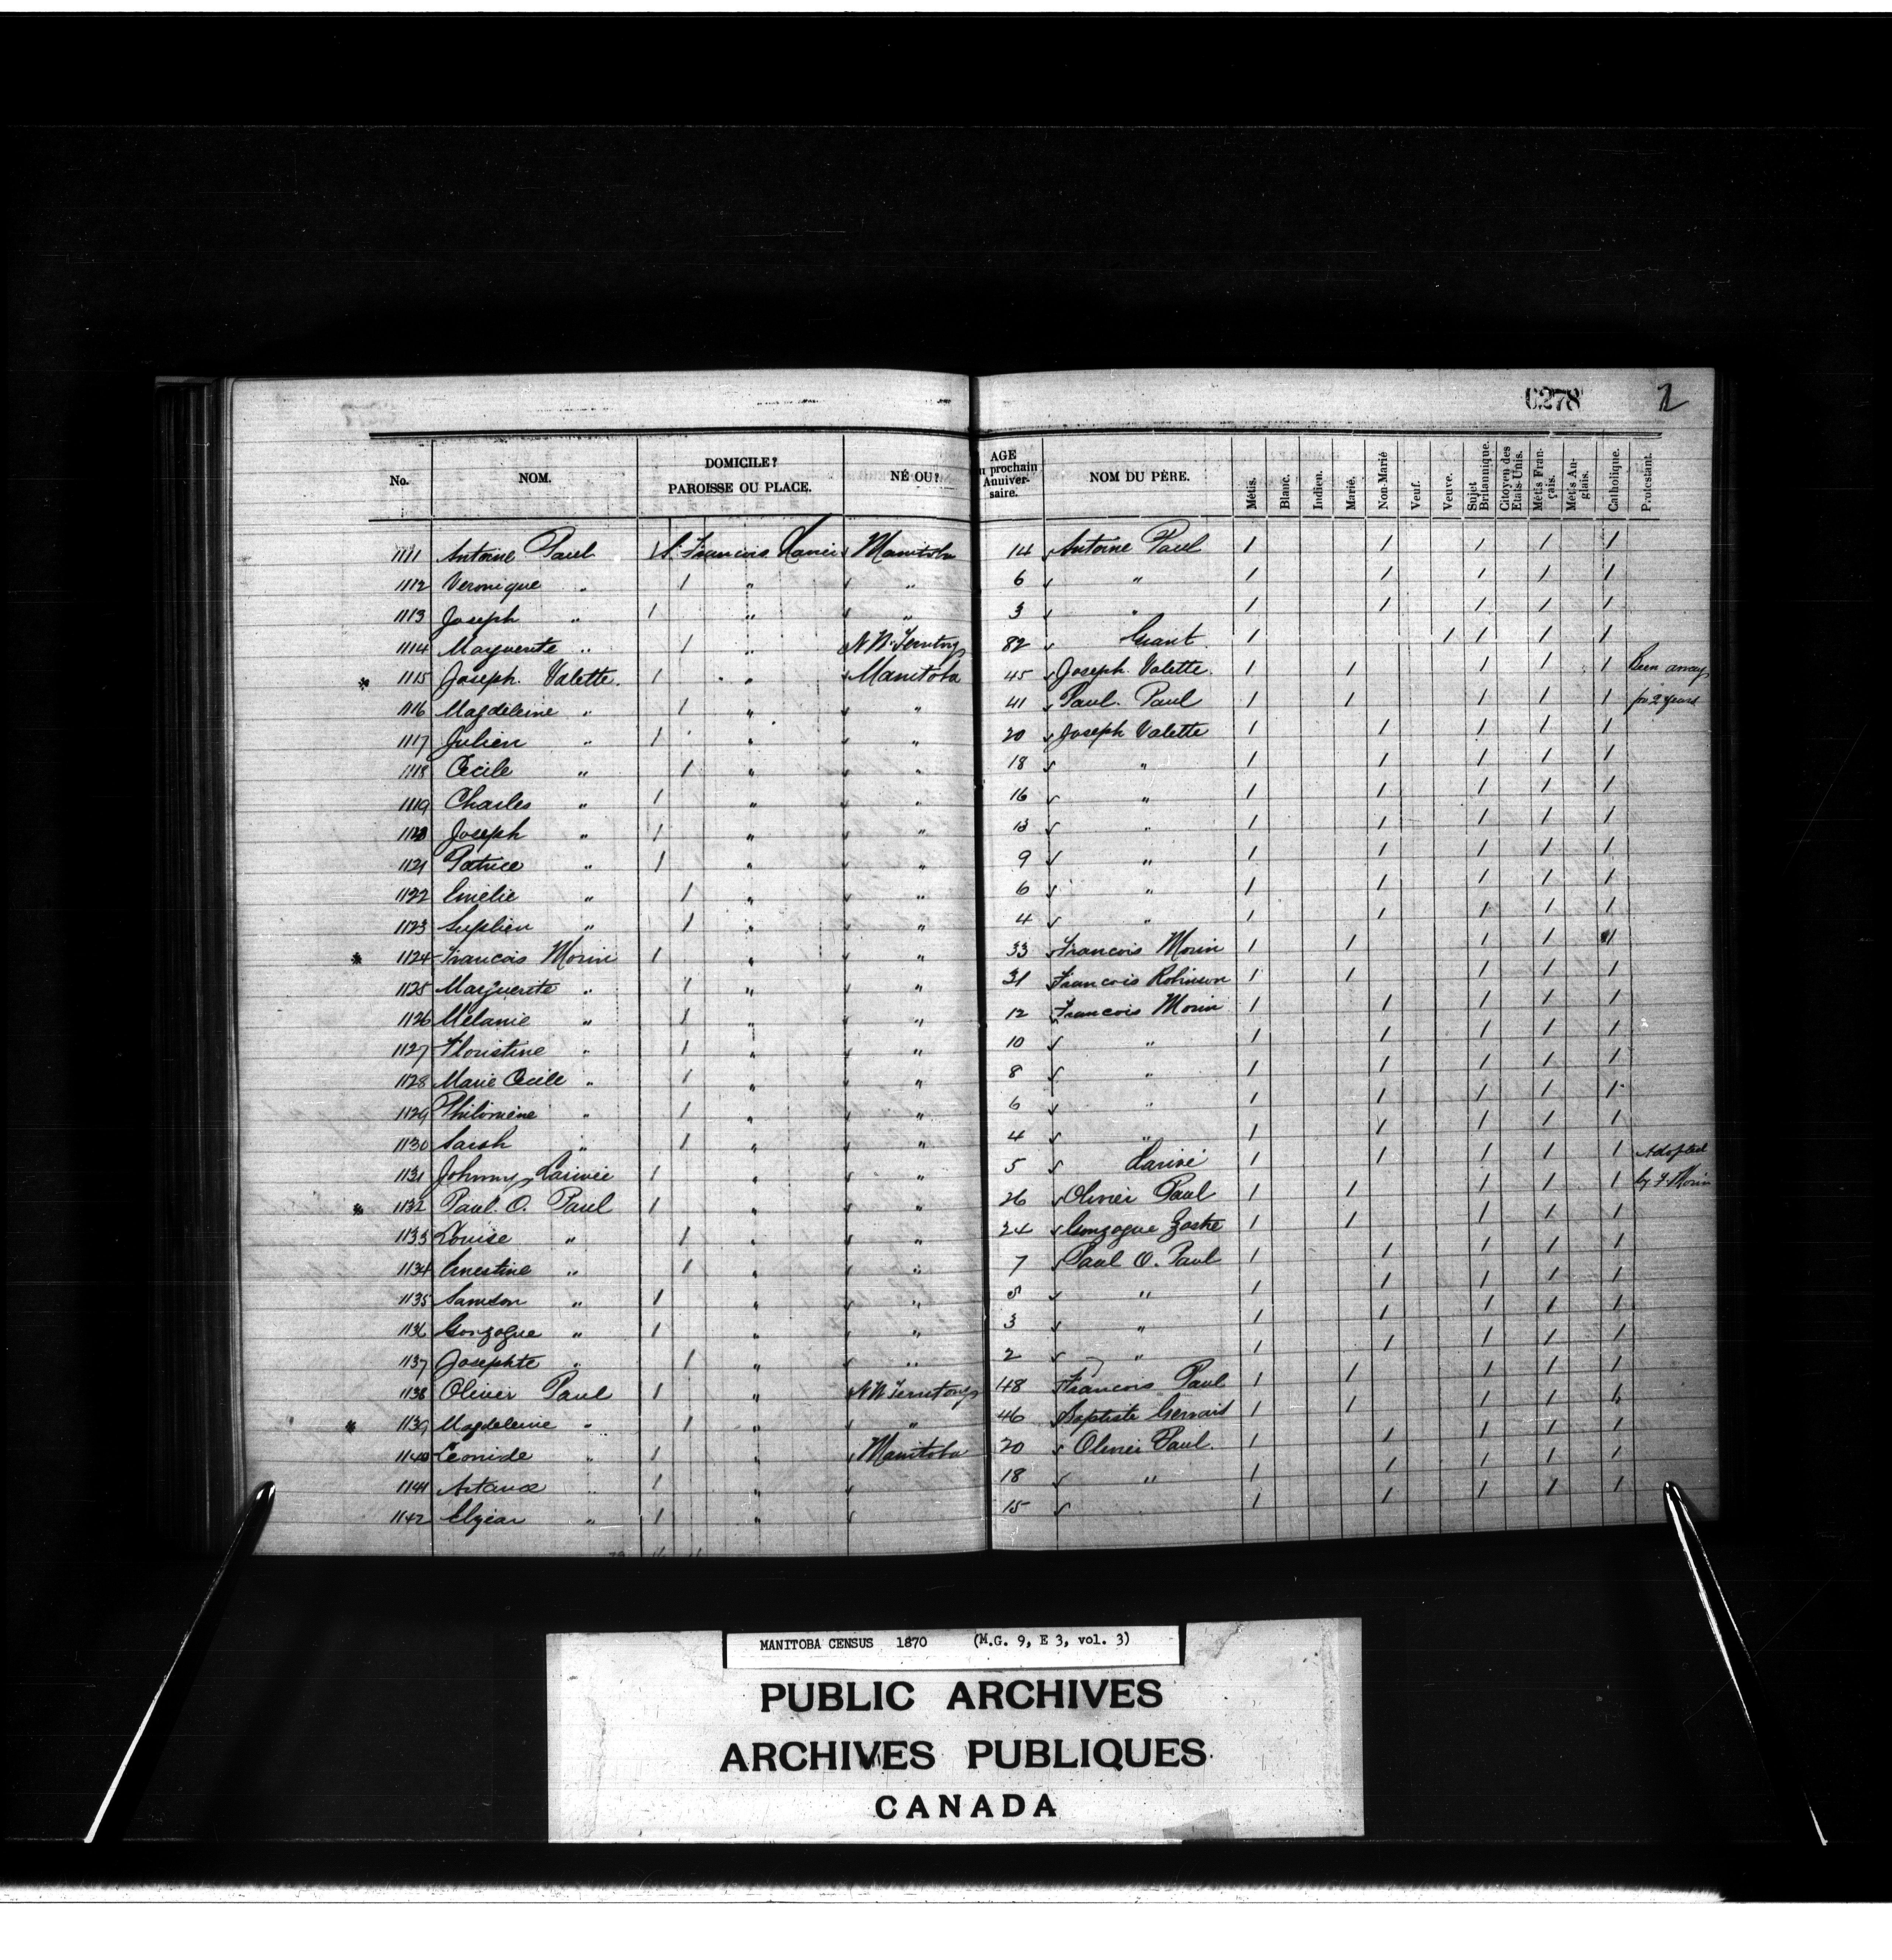 6278 2
No. NOM. DOMICILE? PAROISSE OU PLACE. NÉ OU? AGE au prochain Anniversaire. NOM DU PÈRE. Métis. Blanc. Indien. Marié. Non-Marié Veuf. Veuve. Sujet Britannique. Citoyen des Etats-Unis. Métis Français. Métis Anglais. Catholique. Protestant.
1111 Antoine Paul 1 S. Francois Xavier Manitoba 14 Antoine Paul 1 1 1 1 1
1112 Veronique " 1 " " 6 " 1 1 1 1 1
1113 Joseph " 1 " " 3 " 1 1 1 1 1
1114 Marguerite " 1 " N W. Territory 82 Grant 1 1 1 1 1
* 1115 Joseph Valette 1 " Manitoba 45 Joseph Valette 1 1 1 1 1 Been away
1116 Magdeleine " 1 " " 41 Paul Paul 1 1 1 1 1 for 2 years
1117 Julien " 1 " " 20 Joseph Valette 1 1 1 1 1
1118 Cecile " 1 " " 18 " 1 1 1 1 1
1119 Charles " 1 " " 16 " 1 1 1 1 1
1120 Joseph " 1 " " 13 " 1 1 1 1 1
1121 Patrice " 1 " " 9 " 1 1 1 1 1
1122 Emelie " 1 " " 6 " 1 1 1 1 1
1123 " 1 " " 4 " 1 1 1 1 1
* 1124 Francois Morin 1 " " 33 Francois Morin 1 1 1 1 1
1125 Marguerite " 1 " " 31 Francois Robinson 1 1 1 1 1
1126 Melanie " 1 " " 12 Francois Morin 1 1 1 1 1
1127 Floristine " 1 " " 10 " 1 1 1 1 1
1128 Marie Cecile " 1 " " 8 " 1 1 1 1 1
1129 Philomène " 1 " " 6 " 1 1 1 1 1
1130 Sarah " 1 " " 4 " 1 1 1 1 1
1131 Johnny Larivée 1 " " 5 Larivé 1 1 1 1 1 Adopted
* 1132 Paul. O. Paul 1 " " 26 Olivier Paul 1 1 1 1 1 by F. Morin
1133 Louise " 1 " " 24 Gonzague Zastre 1 1 1 1 1
1134 Ernestine " 1 " " 7 Paul O. Paul 1 1 1 1 1
1135 Samson " 1 " " 5 " 1 1 1 1 1
1136 Gonzague " 1 " " 3 " 1 1 1 1 1
1137 Josephte " 1 " " 2 " 1 1 1 1 1
1138 Olivier Paul 1 " N W Territory 48 Francois Paul 1 1 1 1 1
* 1139 Magdeleine " 1 " " 46 Baptiste Gervais 1 1 1 1 1
1140 Leonide " 1 " Manitoba 20 Olivier Paul 1 1 1 1 1
1141 " 1 " 18 " 1 1 1 1 1
1142 Elzear " 1 " 15 1 1 1 1 1
MANITOBA CENSUS 1870 (M.G. 9, E 3, vol. 3)
PUBLIC ARCHIVES
ARCHIVES PUBLIQUES
CANADA